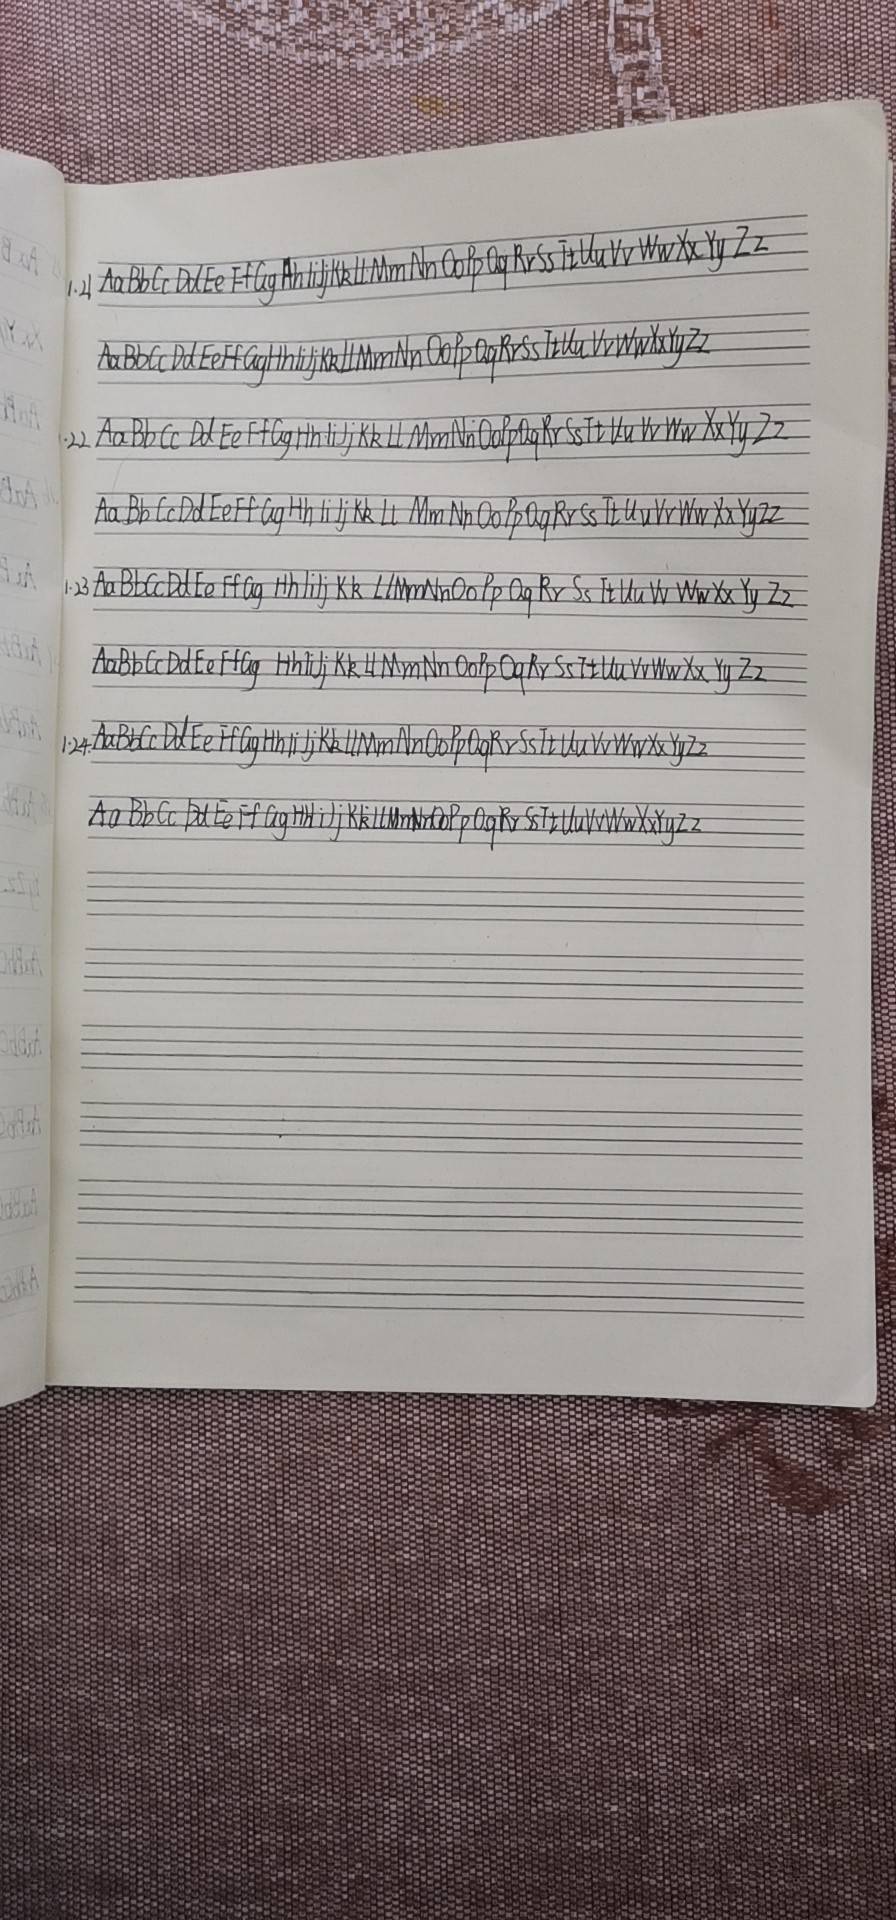 1.21 AaBbCc DdEe FfGg HhIiJjKkLlMmNnOoPpQqRrSsTtUuVvWwXxYyZz
AaBbCcDdEeFfGgHhIiJjKkLlMmNnOoPpQqRrSsTtUuVvWwXxYyZz
1.22 AaBbCc Dd Ee FfGgHhIiJjKk Ll MmNnOoPpQqRrSsTt Uu Vv Ww XxYy Zz
Aa Bb CcDdEeFf Gg Hh Ii Jj Kk Ll Mm Nn OoPpQqRrSs Tt UuVvWw XxYyZz
1.23 AaBbCcDdEe FfGg HhIiJj Kk LlMmNnOo Pp Qq Rr Ss Tt Uu Vv WwXx Yy Zz
AaBbCcDdEeFfGg HhIiJj Kk Ll MmNn OoPp QqRr SsTt UuVvWwXx Yy Zz
1.24. AaBbCc DdEe FfGgHhIiJjKkLlMmNnOoPpQqRrSsTtUuVvWwXxYyZz
Aa BbCc DdEe Ff GgHhIiJjKkLlMmNnOoPpQqRr SsTtUuVvWwXxYyZz